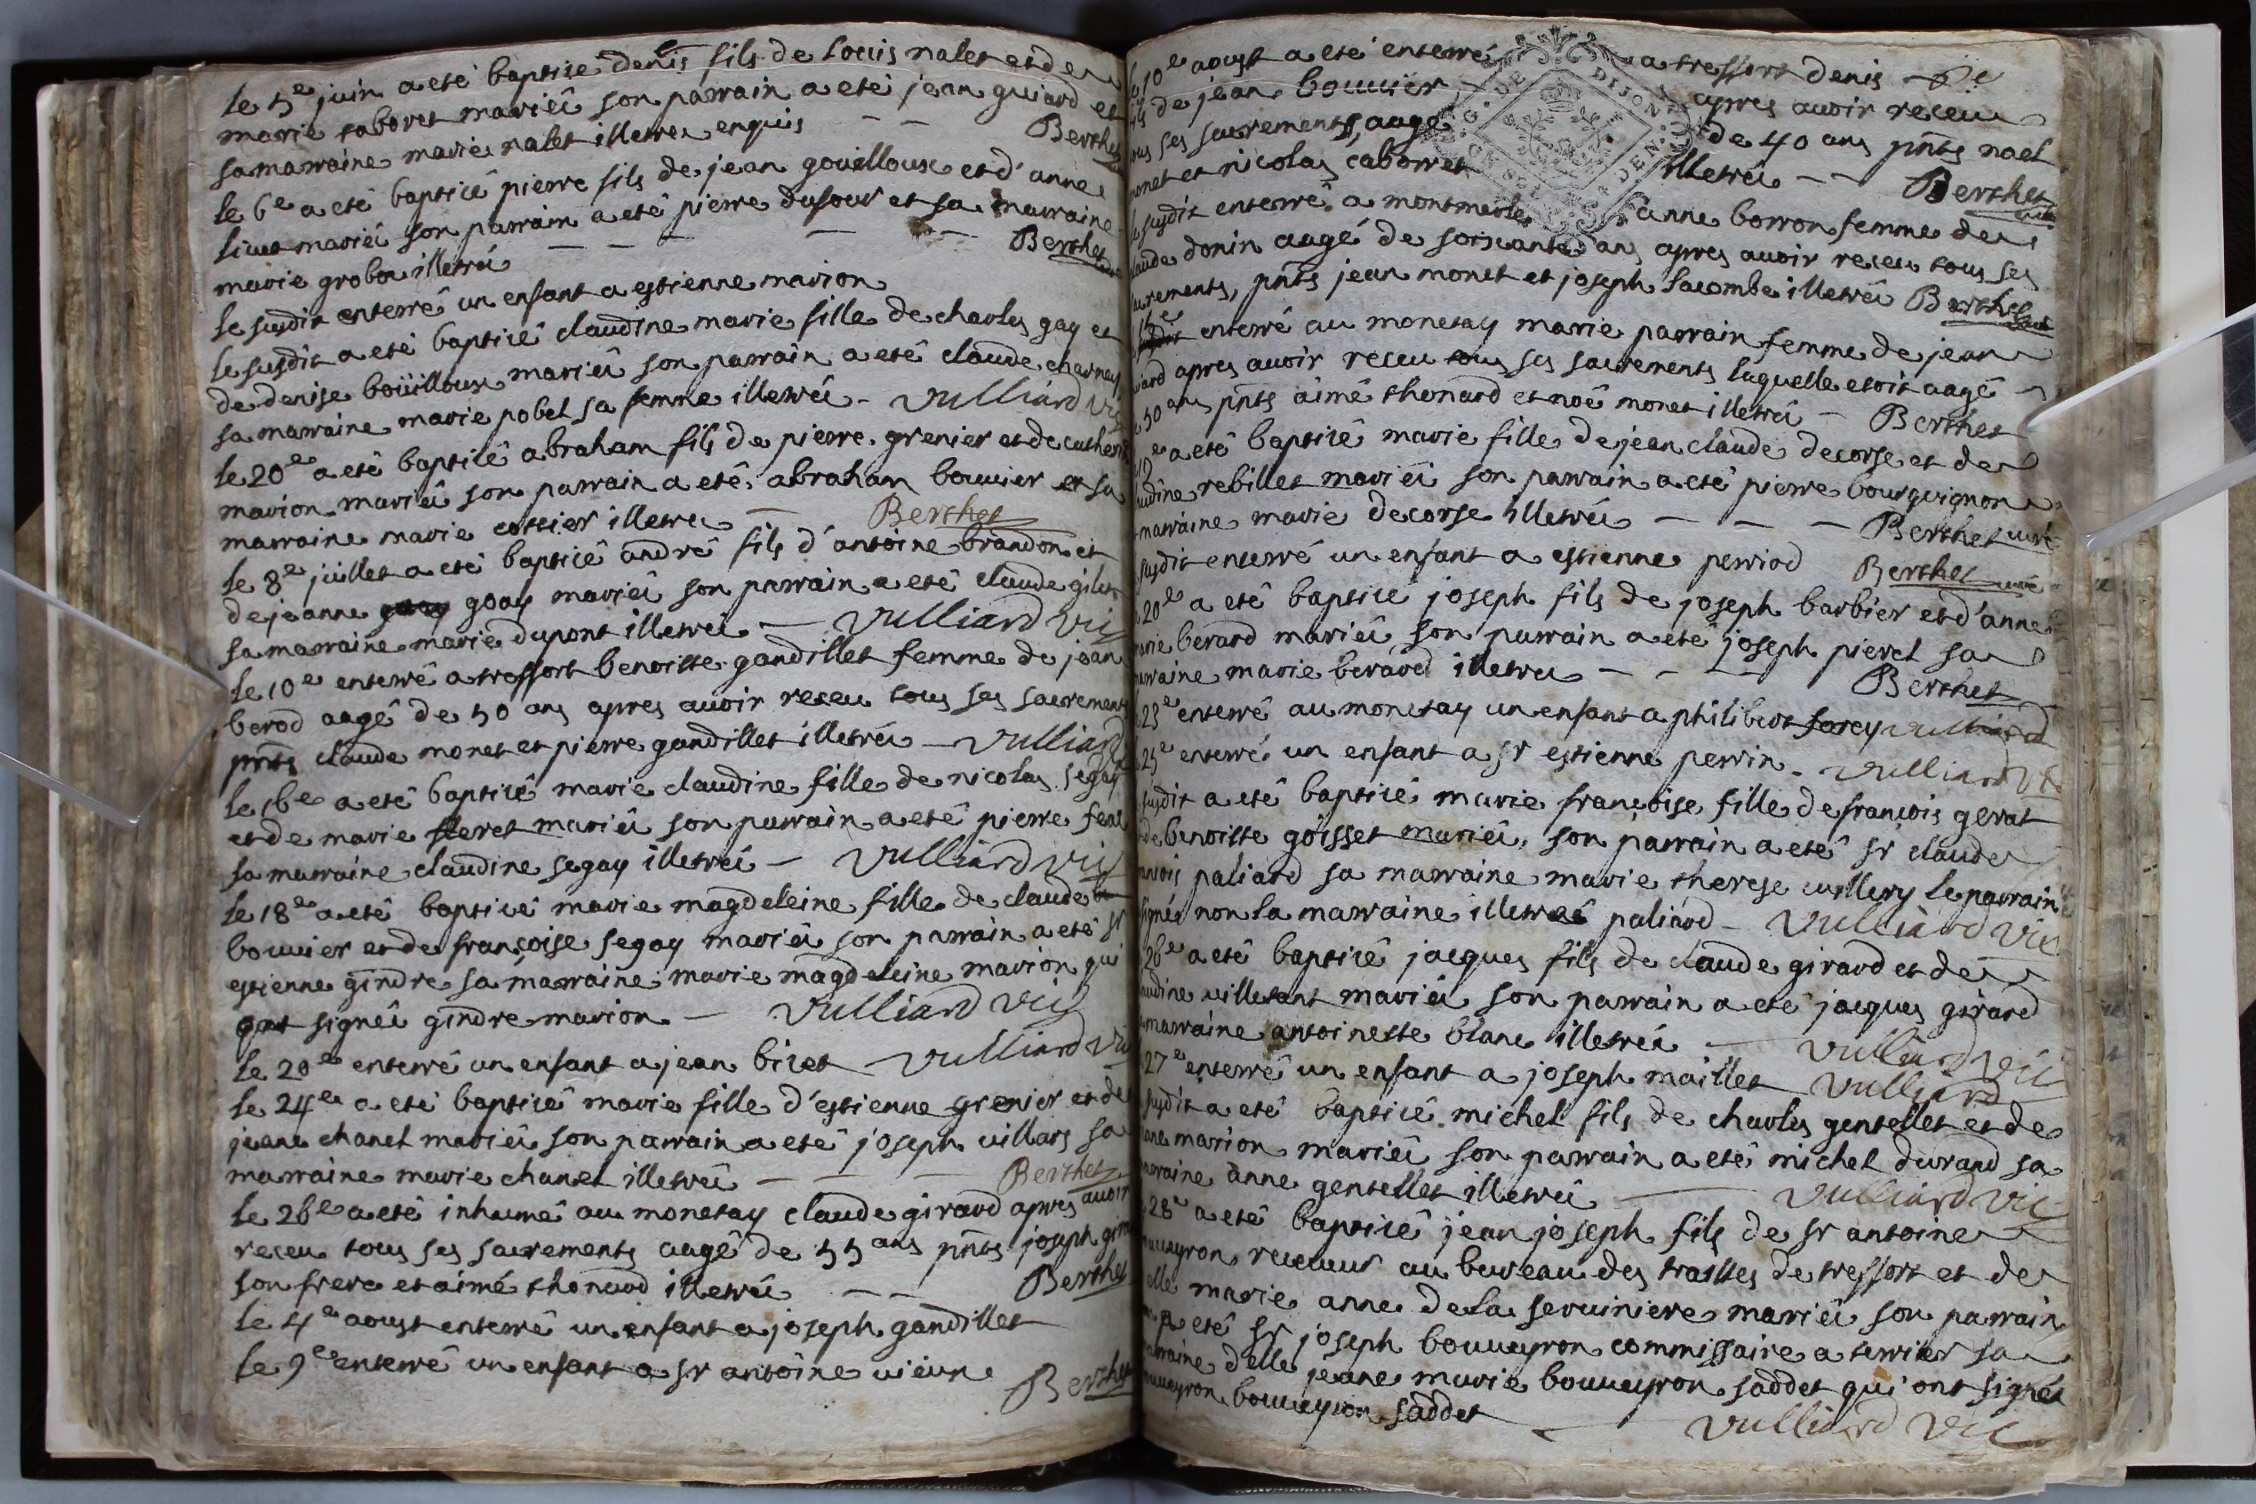 le 5e juin a eté baptisé denis fils de Louis nalet et de
marie taboret mariéz son parrain a eté jean guiard et
sa marraine marie nalet illetréz enquis — — Berthet
le 6e a eté baptisé pierre fils de jean gouilloux et d'anne
mariéz son parrain a eté pierre dufour et sa marraine
marie grobon illetréz — — — — Berthet
le susdit enterré un enfant a estienne marion
le susdit a eté baptisé claudine marie fille de charles gay et
de denise boüilloux mariéz son parrain a eté claude charnay
sa marraine marie pobel sa femme illetréz — Vulliard vic
le 20e a eté baptisé abraham fils de pierre grenier et de catherine
marion mariéz son parrain a eté abraham bouvier et sa
marraine marie cottier illetréz — Berthet
le 8e juillet a eté baptisé andré fils d'antoine brandon et
de jeanne goay mariéz son parrain a eté claude gilet
sa marraine marie dupont illetréz — Vulliard vic
le 10e enterré a tressort benoitte gandillet femme de jean
berod aagé de 50 ans apres avoir receu tous ses sacrements
pnts claude monet et pierre gandillet illetréz — Vulliard
le 16e a eté baptisé marie claudine fille de nicolas segay
et de marie feret mariéz son parrain a eté pierre feret
sa marraine claudine segay illetréz — Vulliard vic
le 18e a eté baptisé marie magdeleine fille de claude
bouvier et de françoise segay mariéz son parrain a eté sr
estienne gindre sa marraine marie magdeleine marion qui
ont signéz gindre marion — Vulliard vic
le 20e enterré un enfant a jean bizet Vulliard vic
le 24e a eté baptisé marie fille d'estienne grenier et de
jeane chanel mariéz son parrain a eté joseph villars sa
marraine marie chanel illetréz — — — Berthet
le 26e a eté inhumé au monetay claude girard apres avoir
receu tous ses sacrements aagé de 55 ans pnts joseph girard
son frere et aimé thonard illetréz — — Berthet
le 4e aoust enterré un enfant a joseph gandillet
le 9e enterré un enfant a sr antoine vieux
Berthet
le 10e aoust a eté enterré a tressort denis
fils de jean bouvier apres avoir receu
tous ses sacrements, aagé de 40 ans pnts noel
monet et nicolas caborret illetréz — — Berthet
le susdit enterré a montmerle anne borron femme de
claude donin aagé de soixante ans apres avoir receu tous ses
sacrements, pnts jean monet et joseph lacombe illetréz Berthet curé
enterré au monetay marie parrain femme de jean
apres avoir receu tous ses sacrements laquelle etoit aagé
de 50 ans pnts aimé thonard et noé monet illetréz — Berthet
a eté baptisé marie fille de jean claude decorse et de
claudine rebillet mariéz son parrain a eté pierre bourguignon
marraine marie decorse illetréz — — — Berthet curé
susdit enterré un enfant a estienne perriod Berthet curé
20e a eté baptisé joseph fils de joseph barbier et d'anne
marie berard mariéz son parrain a eté joseph pierel sa
marraine marie berard illetréz — — — Berthet
23e enterré au monetay un enfant a philibert forey Vulliard
25e enterré un enfant a sr estienne perrin — Vulliard vic
susdit a eté baptisé marie françoise fille de françois gerat
et de benoitte goisset mariéz, son parrain a eté sr claude
françois paliard sa marraine marie therese cuillery le parrain
signéz non la marraine illetrée paliard — Vulliard vic
26e a eté baptisé jacques fils de claude girard et de
claudine villetant mariéz son parrain a eté jacques girard
marraine antoinette blanc illetréz — Vulliard vic
27e enterré un enfant a joseph maillet Vulliard
susdit a eté baptisé michel fils de charles gentellet et de
marion mariéz son parrain a eté michel durand sa
marraine anne gentellet illetréz — Vulliard vic
28e a eté baptisé jean joseph fils de sr antoine
bouveyron receveur au bureau des traittes de tressort et de
delle marie anne de la serviniere mariéz son parrain
a eté sr joseph bouveyron commissaire a terrier sa
marraine delle jeane marie bouveyron saddet qui ont signéz
bouveyron bouveyron saddet — Vulliard vic
G. DE DIJON